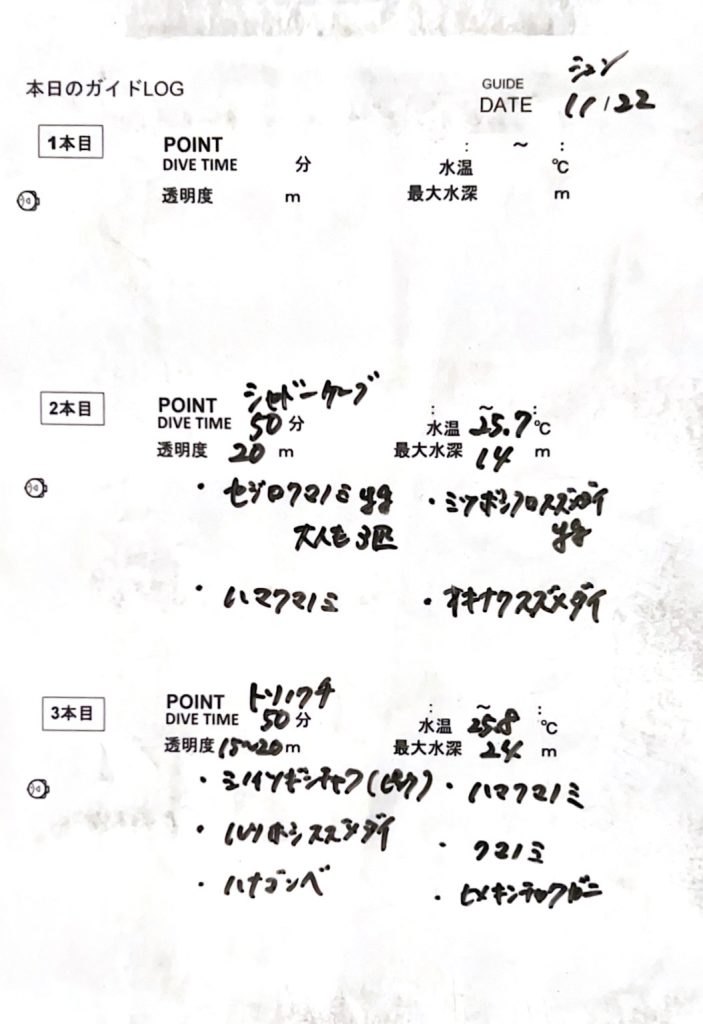 本日のガイドLOG
GUIDE ジュン
DATE 11/22
1本目
POINT : ～ :
DIVE TIME 分 水温 ℃
透明度 m 最大水深 m
2本目
POINT シャドーケーブ : ～ :
DIVE TIME 50分 水温 25.7℃
透明度 20 m 最大水深 14 m
・セジロクマノミ yg ・ミツボシクロスズメダイ
大人も3匹 yg
・ハマクマノミ ・オキナワスズメダイ
3本目
POINT トリノクチ : ～ :
DIVE TIME 50分 水温 25.8℃
透明度 15～20m 最大水深 24 m
・ミノイソギンチャク(ピンク) ・ハマクマノミ
・ルリホシスズメダイ ・クマノミ
・ハナゴンベ ・ヒメキンチャクガニ